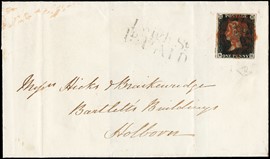 POSTAGE
ONE PENNY
Messrs Hicks & Braikenridge
Bartlett's Buildings
Holborn